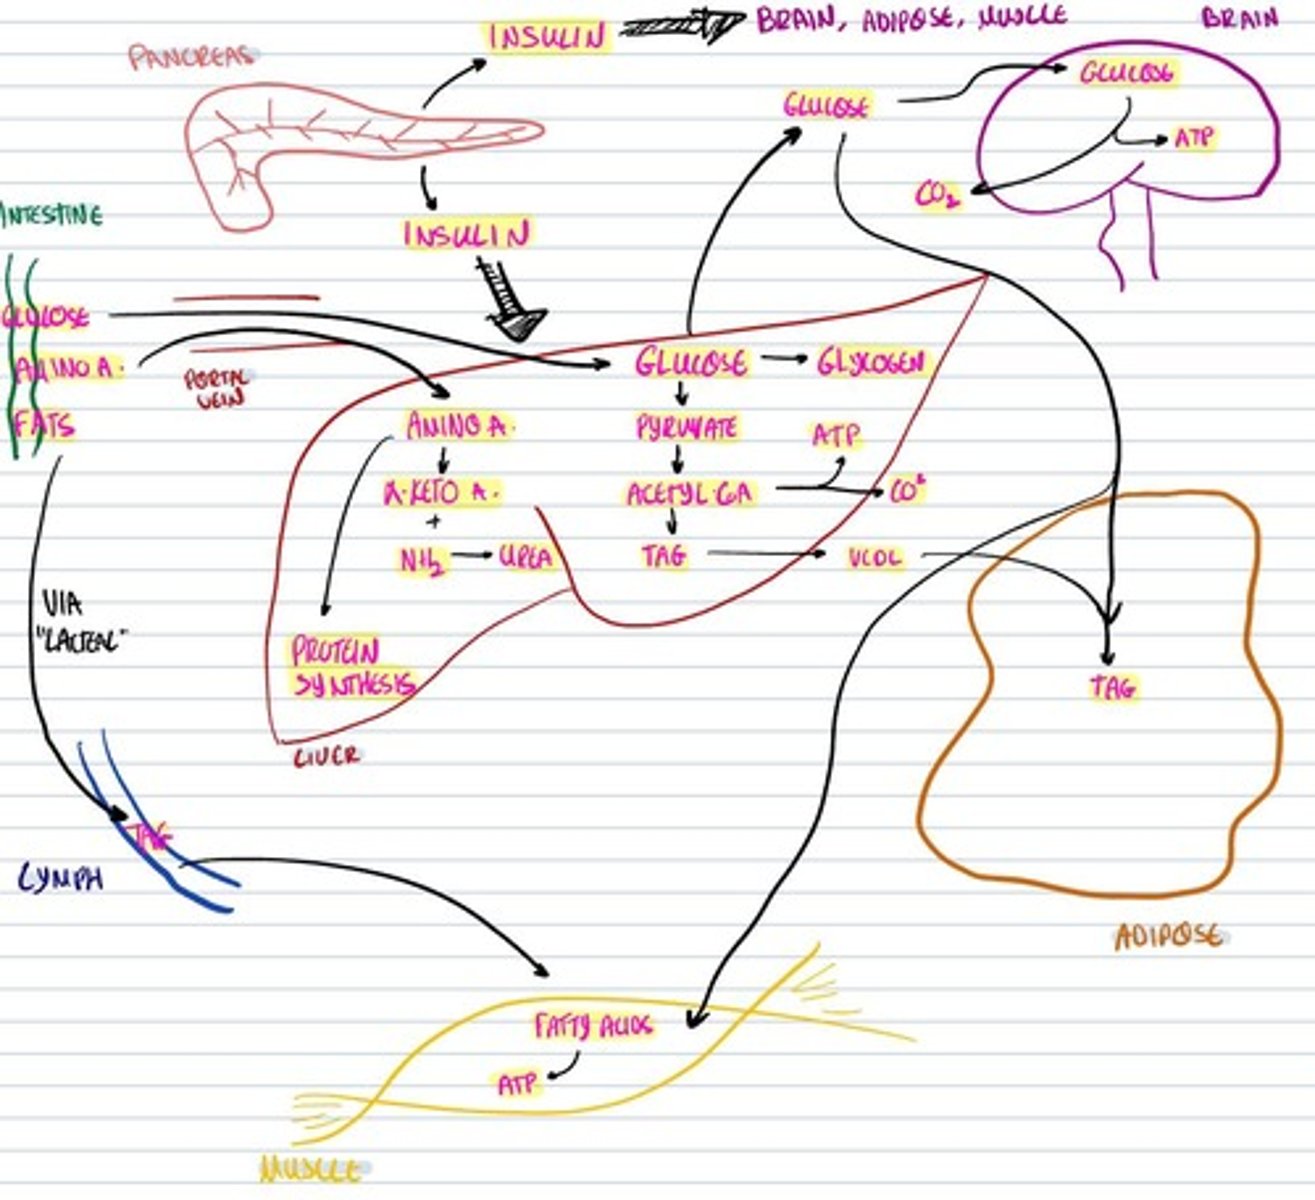 INSULIN
BRAIN, ADIPOSE, MUSCLE
BRAIN
PANCREAS
GLUCOSE
GLUCOSE
ATP
CO₂
INTESTINE
INSULIN
GLUCOSE
AMINO A.
FATS
PORTAL
VEIN
GLUCOSE
GLYCOGEN
AMINO A.
PYRUVATE
ATP
α-KETO A.
ACETYL-COA
+
NH₂
UREA
TAG
VLDL
VIA
"LACTEAL"
PROTEIN
SYNTHESIS
TAG
LIVER
TAG
LYMPH
ADIPOSE
FATTY ACIDS
ATP
MUSCLE